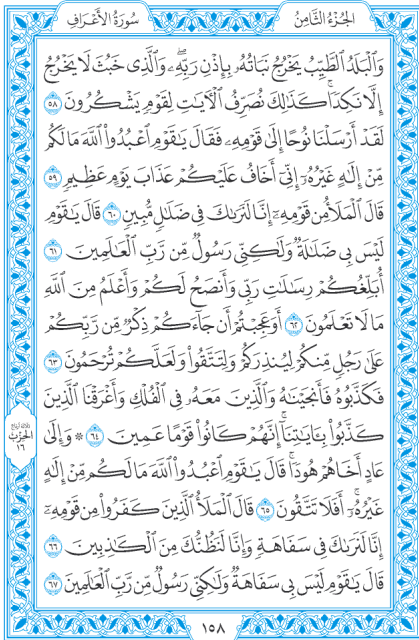 الجُزْءُ الثَّامِنُ
سُورَةُ الأَعْرَافِ
وَالْبَلَدُ الطَّيِّبُ يَخْرُجُ نَبَاتُهُ بِإِذْنِ رَبِّهِ ۖ وَالَّذِي خَبُثَ لَا يَخْرُجُ
إِلَّا نَكِدًا ۚ كَذَٰلِكَ نُصَرِّفُ الْآيَاتِ لِقَوْمٍ يَشْكُرُونَ ٥٨
لَقَدْ أَرْسَلْنَا نُوحًا إِلَىٰ قَوْمِهِ فَقَالَ يَا قَوْمِ اعْبُدُوا اللَّهَ مَا لَكُم
مِّنْ إِلَٰهٍ غَيْرُهُ إِنِّي أَخَافُ عَلَيْكُمْ عَذَابَ يَوْمٍ عَظِيمٍ ٥٩
قَالَ الْمَلَأُ مِن قَوْمِهِ إِنَّا لَنَرَاكَ فِي ضَلَالٍ مُّبِينٍ ٦٠ قَالَ يَا قَوْمِ
لَيْسَ بِي ضَلَالَةٌ وَلَٰكِنِّي رَسُولٌ مِّن رَّبِّ الْعَالَمِينَ ٦١
أُبَلِّغُكُمْ رِسَالَاتِ رَبِّي وَأَنصَحُ لَكُمْ وَأَعْلَمُ مِنَ اللَّهِ
مَا لَا تَعْلَمُونَ ٦٢ أَوَعَجِبْتُمْ أَن جَاءَكُمْ ذِكْرٌ مِّن رَّبِّكُمْ
عَلَىٰ رَجُلٍ مِّنكُمْ لِيُنذِرَكُمْ وَلِتَتَّقُوا وَلَعَلَّكُمْ تُرْحَمُونَ ٦٣
فَكَذَّبُوهُ فَأَنجَيْنَاهُ وَالَّذِينَ مَعَهُ فِي الْفُلْكِ وَأَغْرَقْنَا الَّذِينَ
كَذَّبُوا بِآيَاتِنَا ۚ إِنَّهُمْ كَانُوا قَوْمًا عَمِينَ ٦٤ ۞ وَإِلَىٰ
عَادٍ أَخَاهُمْ هُودًا ۗ قَالَ يَا قَوْمِ اعْبُدُوا اللَّهَ مَا لَكُم مِّنْ إِلَٰهٍ
غَيْرُهُ ۚ أَفَلَا تَتَّقُونَ ٦٥ قَالَ الْمَلَأُ الَّذِينَ كَفَرُوا مِن قَوْمِهِ
إِنَّا لَنَرَاكَ فِي سَفَاهَةٍ وَإِنَّا لَنَظُنُّكَ مِنَ الْكَاذِبِينَ ٦٦
قَالَ يَا قَوْمِ لَيْسَ بِي سَفَاهَةٌ وَلَٰكِنِّي رَسُولٌ مِّن رَّبِّ الْعَالَمِينَ ٦٧
الحِزْبُ
١٦
١٥٨